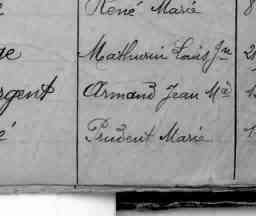 René Marie 8
Mathurin Louis Jn
rgent Armand Jean Mie
é Prudent Marie